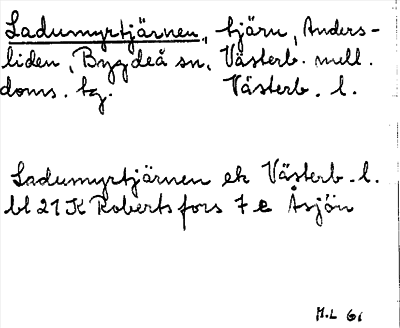 Ladumyrtjärnen, tjärn, Anders-
liden, Bygdeå sn, Västerb. mell.
doms. tg. Västerb. l.
Ladumyrtjärnen ek Västerb. l.
bl 21 K Robertsfors 7 e Åsjön
H.L 61